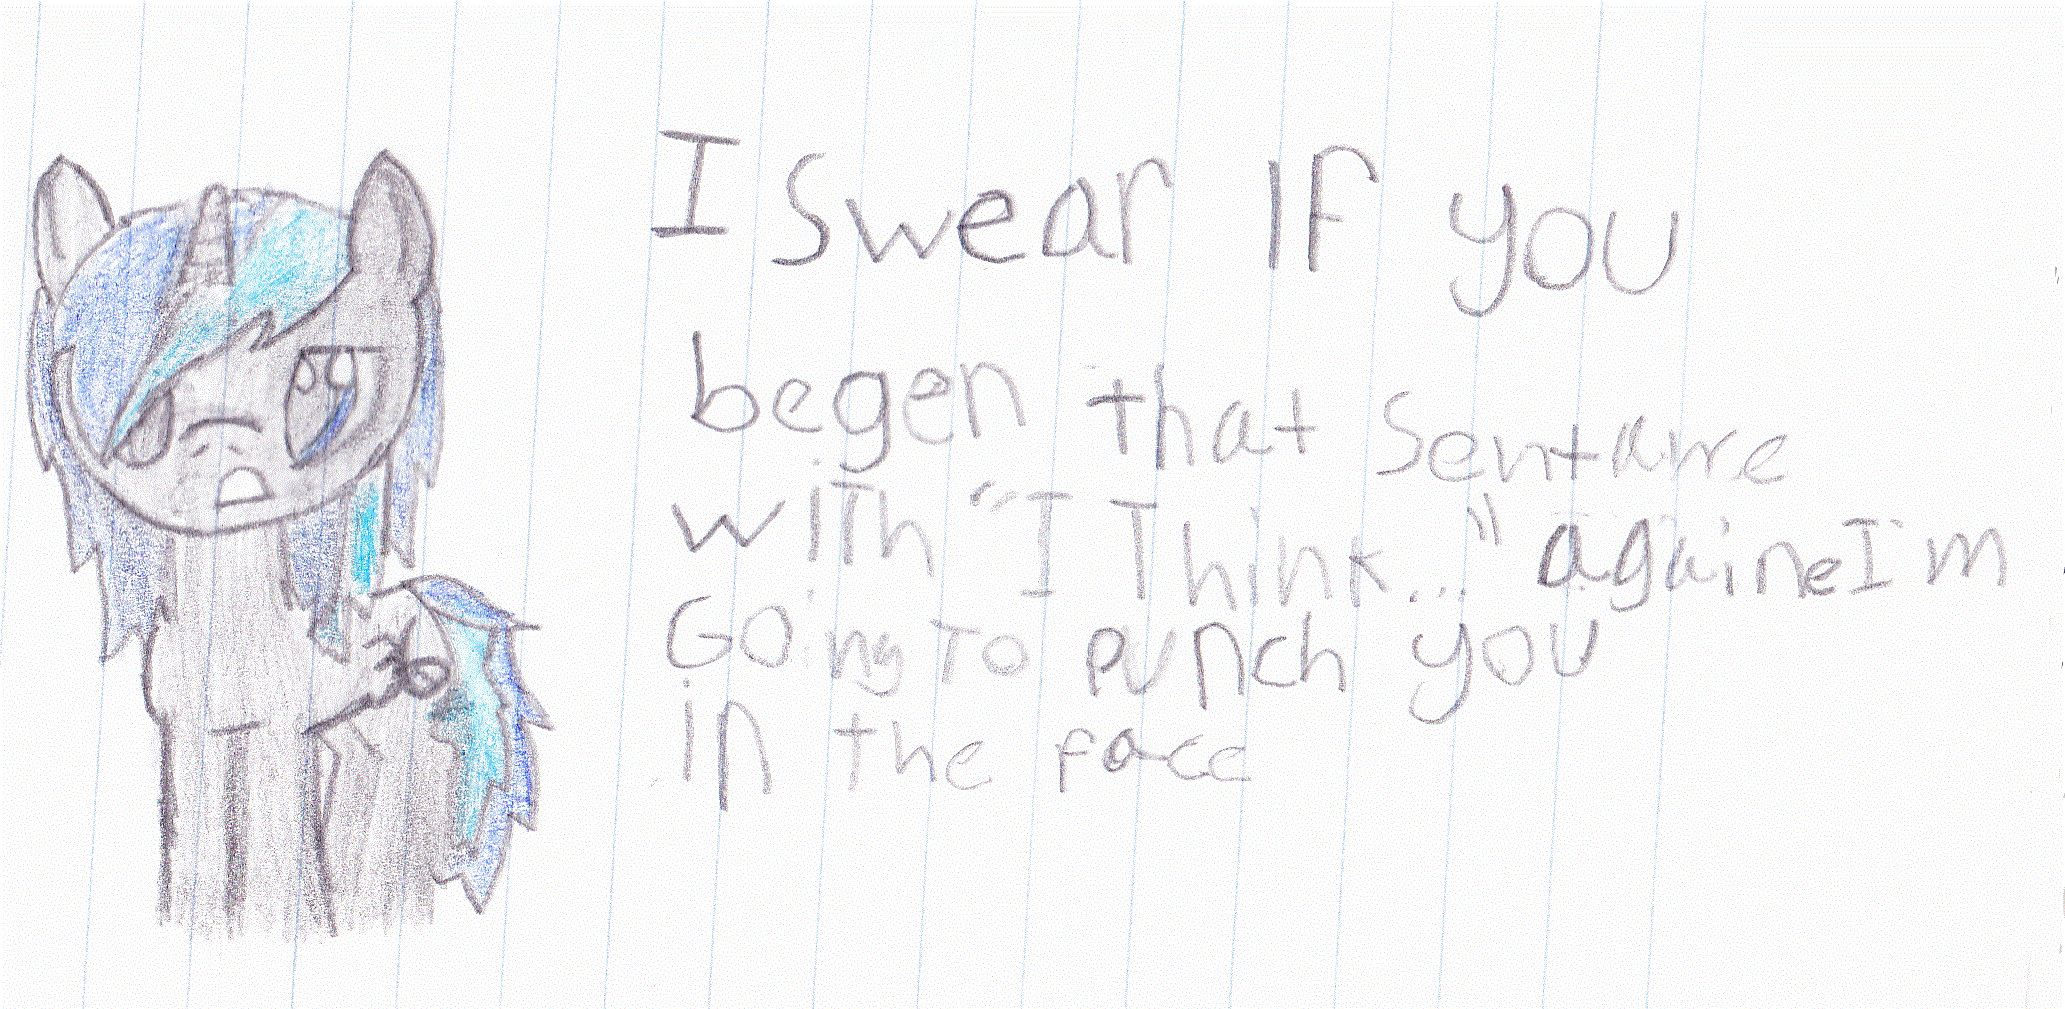 I Swear IF you
begen that Sentance
with "I Think..." againe I'm
Going To punch you
in the face